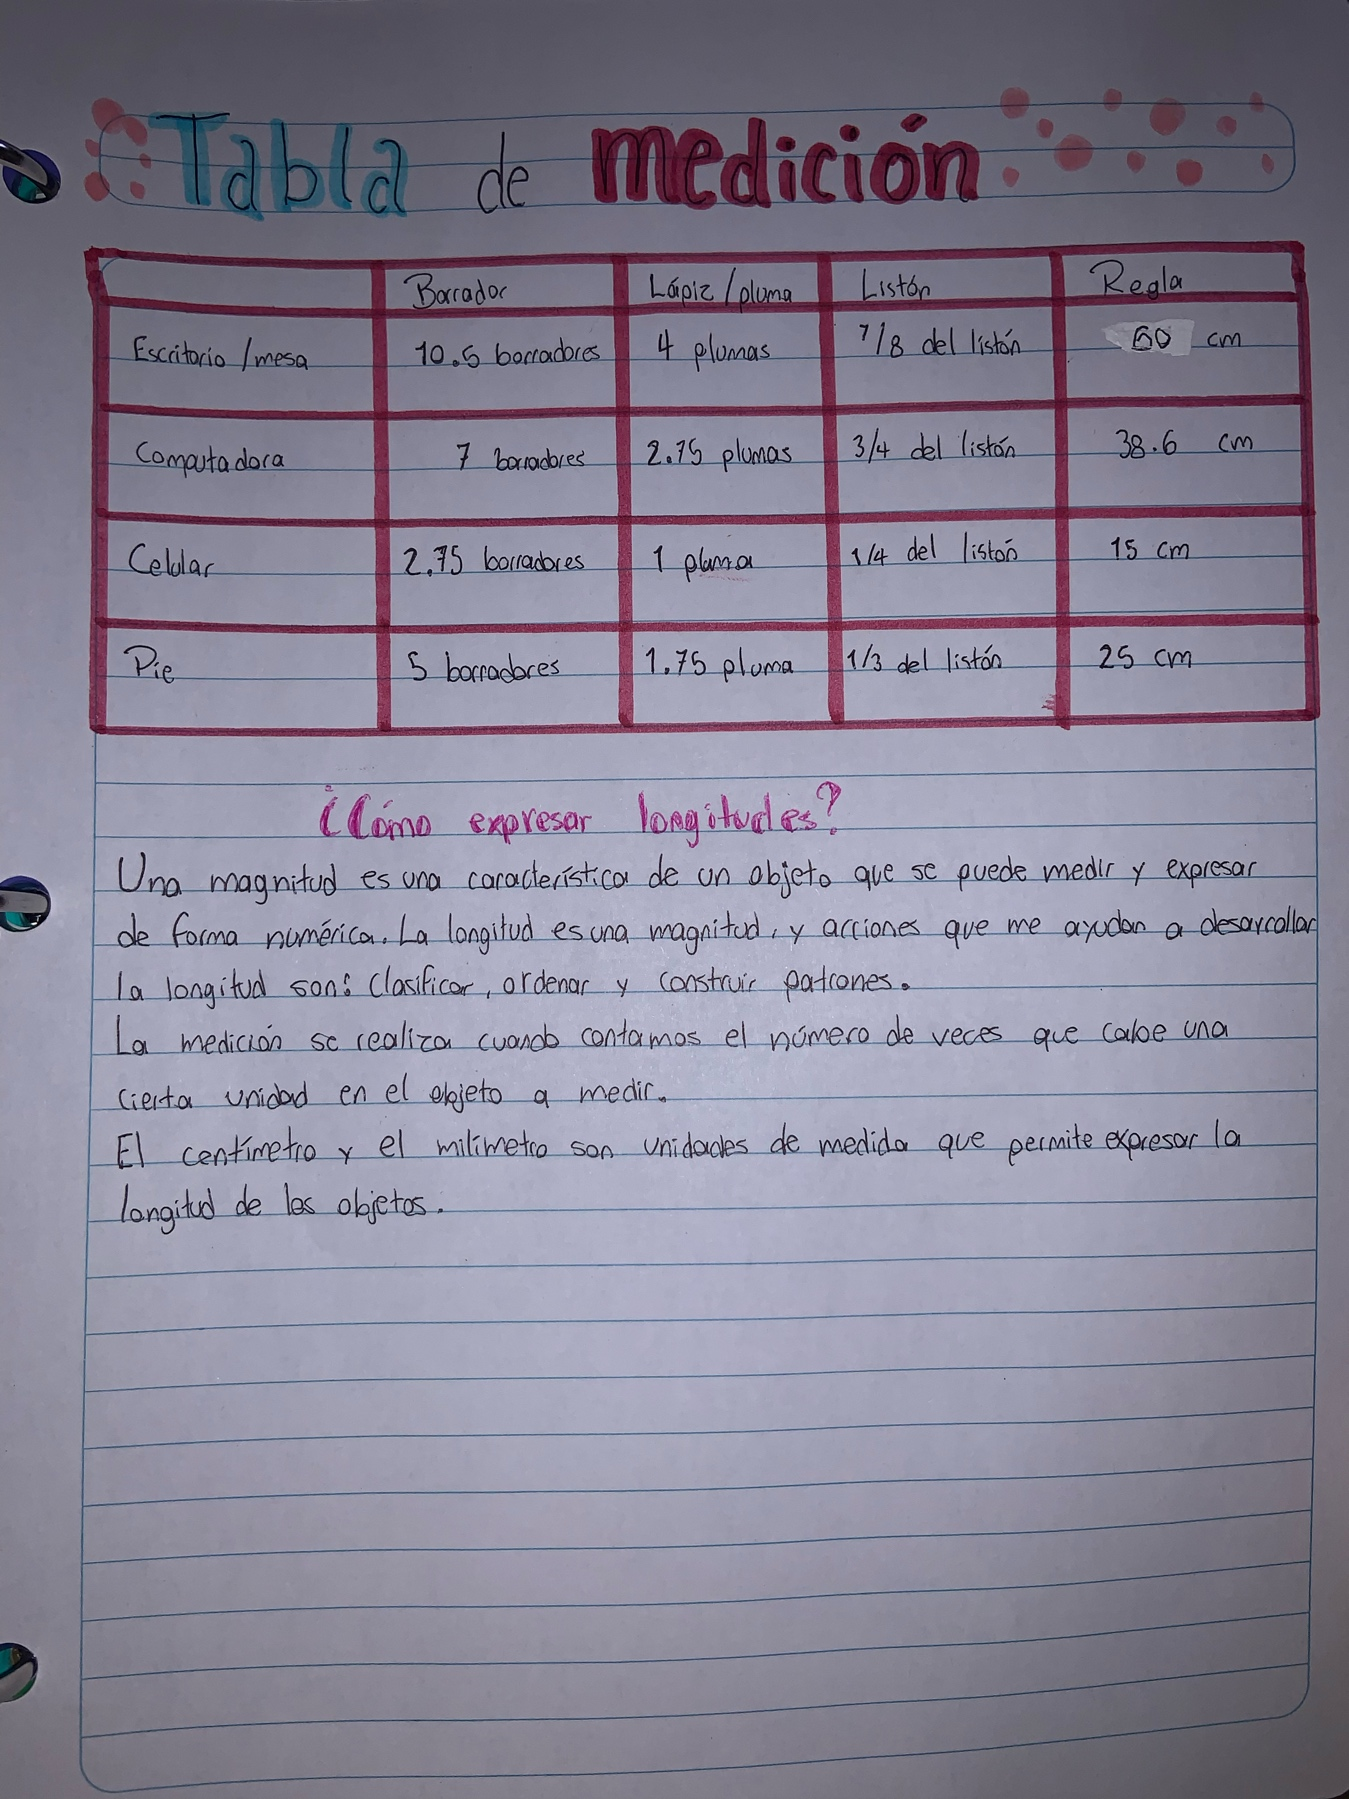 Tabla de medición
Borrador Lápiz/pluma Listón Regla
Escritorio/mesa 10.5 borradores 4 plumas 7/8 del listón 60 cm
Computadora 7 borradores 2.75 plumas 3/4 del listón 38.6 cm
Celular 2.75 borradores 1 pluma 1/4 del listón 15 cm
Pie 5 borradores 1.75 pluma 1/3 del listón 25 cm
¿Cómo expresar longitudes?
Una magnitud es una característica de un objeto que se puede medir y expresar
de forma numérica. La longitud es una magnitud, y acciones que me ayudan a desarrollar
la longitud son: Clasificar, ordenar y construir patrones.
La medición se realiza cuando contamos el número de veces que cabe una
cierta unidad en el objeto a medir.
El centímetro y el milímetro son unidades de medida que permite expresar la
longitud de los objetos.